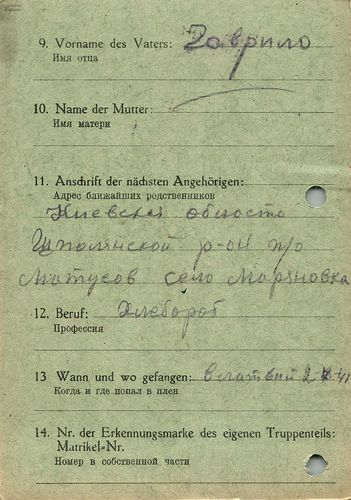 9. Vorname des Vaters: Гаврило
Имя отца
10. Name der Mutter:
Имя матери
11. Anschrift der nächsten Angehörigen:
Адрес ближайших родственников
Киевская область
Шполянской р-он п/о
Матусов село Маряновка
12. Beruf: Хлебороб
Профессия
13 Wann und wo gefangen:
Когда и где попал в плен
14. Nr. der Erkennungsmarke des eigenen Truppenteils:
Matrikel-Nr.
Номер в собственной части